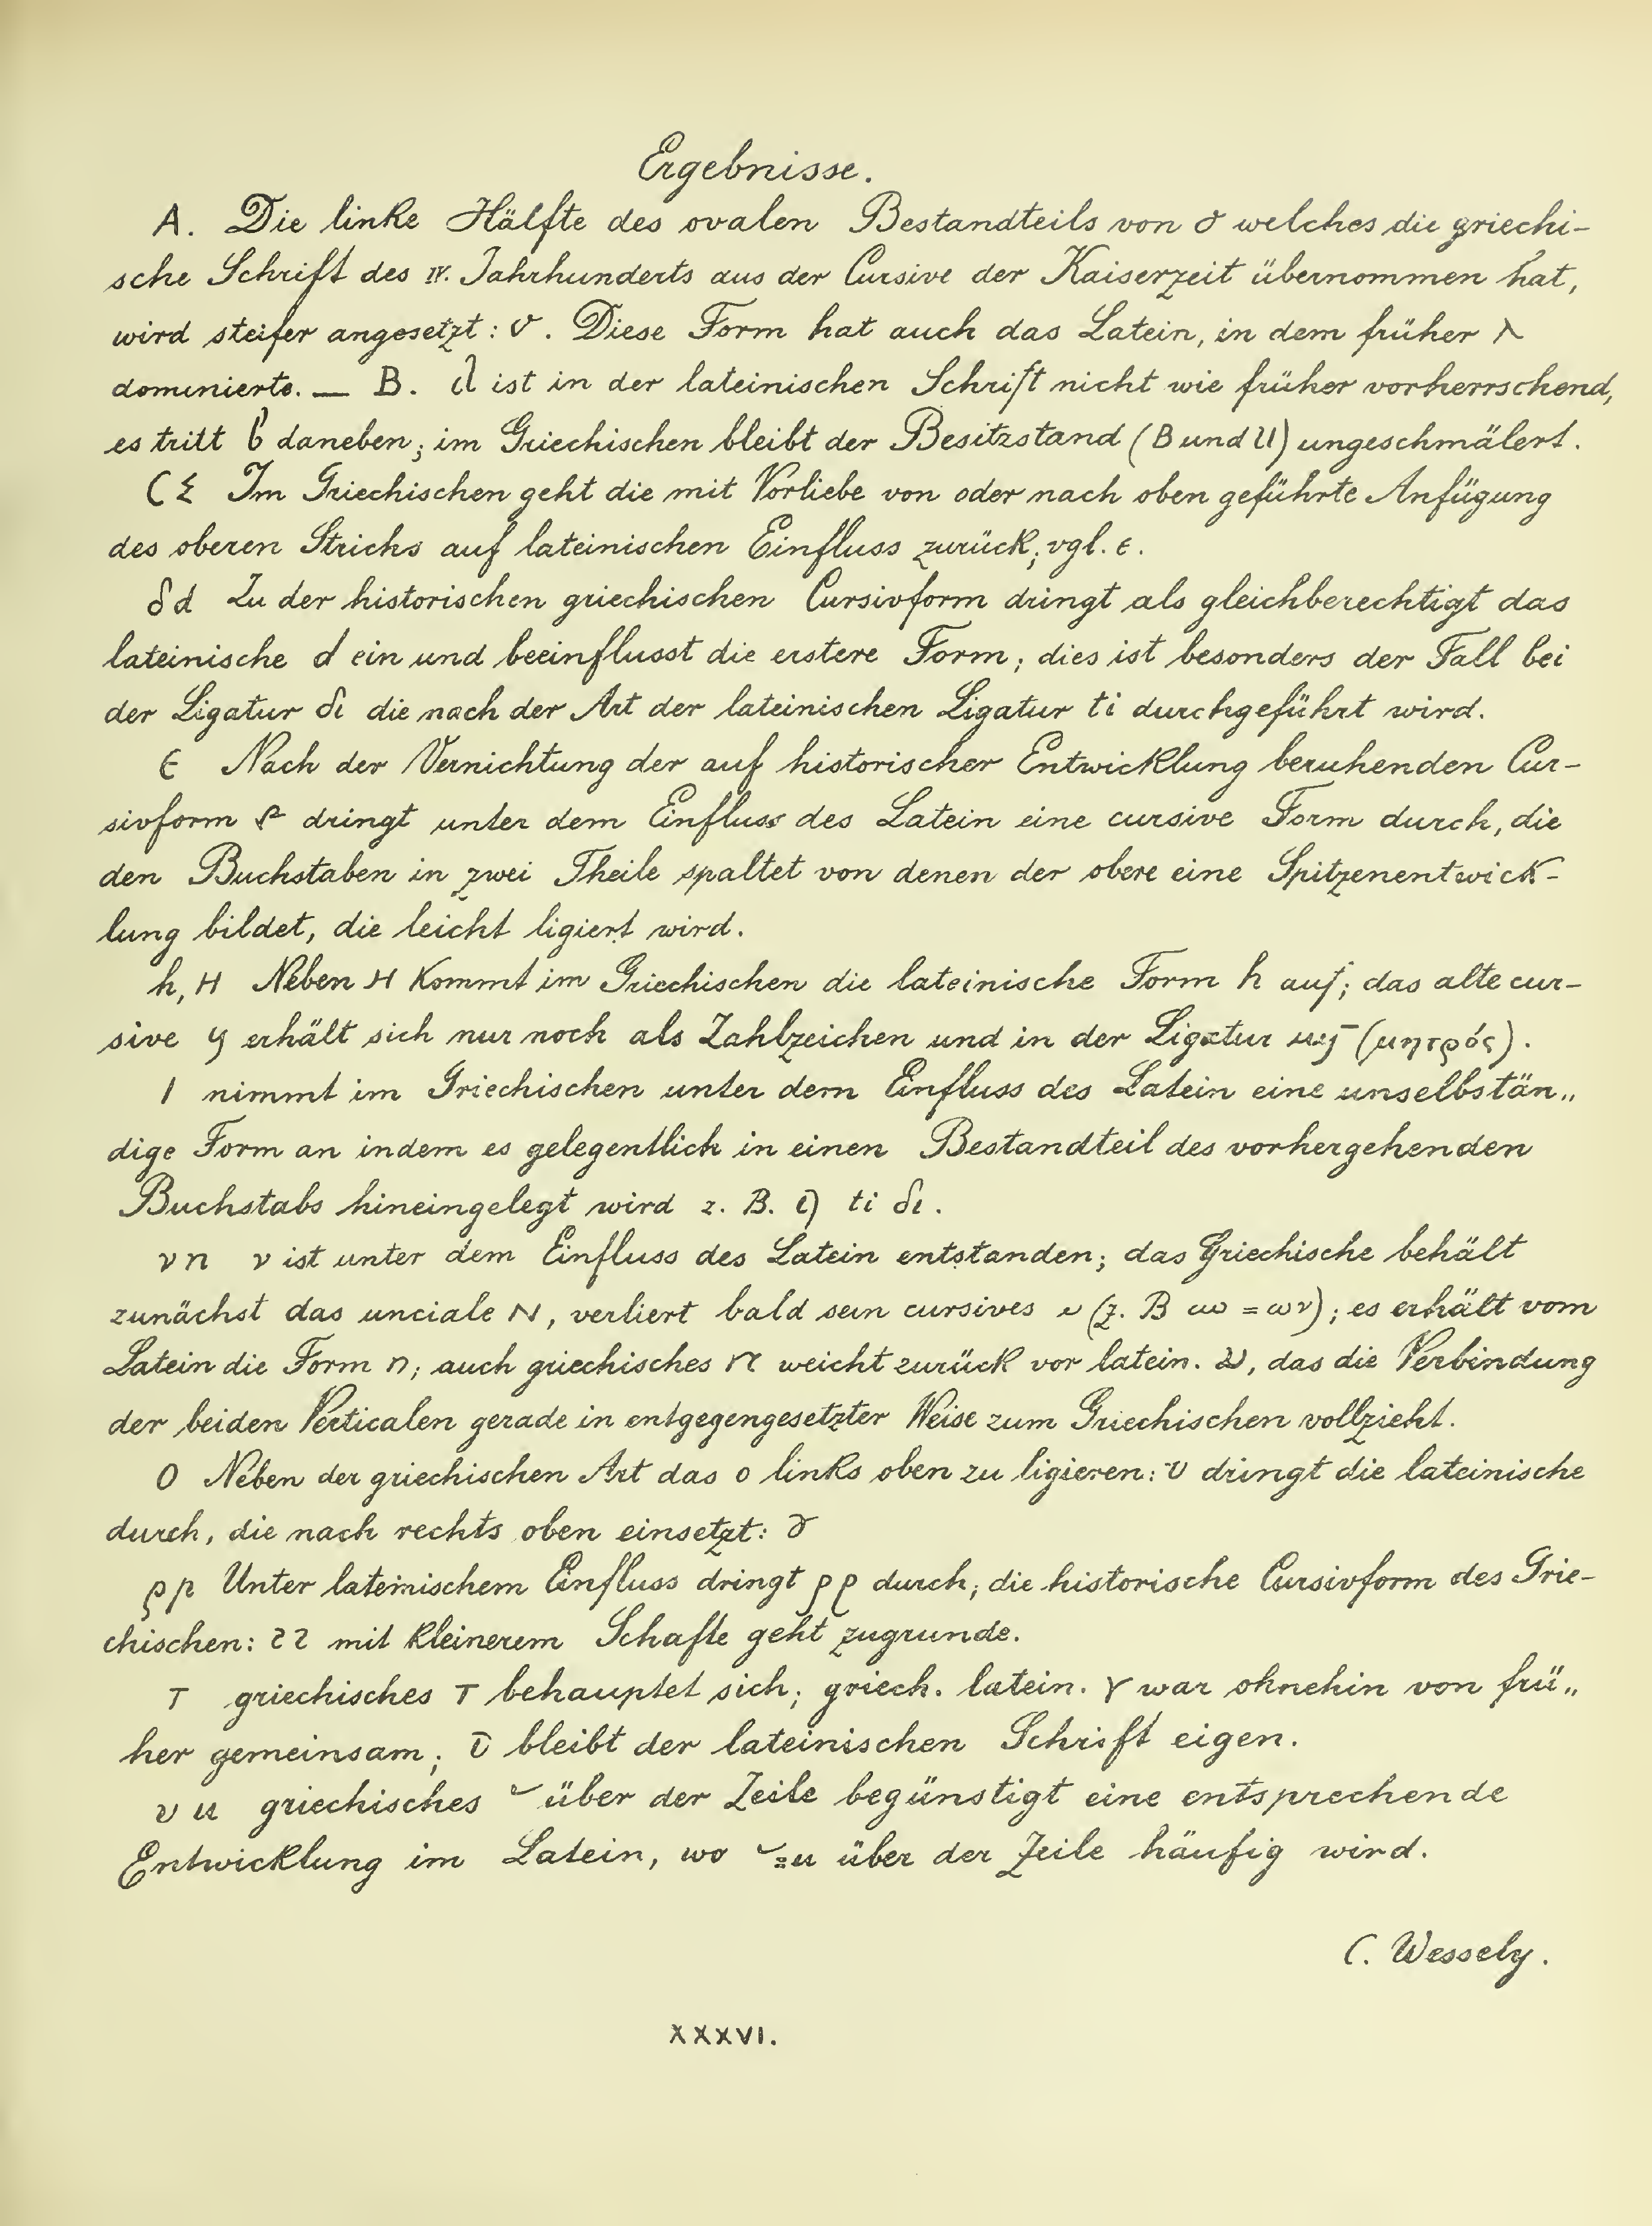 Ergebnisse.
A. Die linke Hälfte des ovalen Bestandteils von welches die griechi-
sche Schrift des IV. Jahrhunderts aus der Cursive der Kaiserzeit übernommen hat,
wird steifer angesetzt: . Diese Form hat auch das Latein, in dem früher λ
dominierte. — B. ist in der lateinischen Schrift nicht wie früher vorherrschend,
es tritt daneben; im Griechischen bleibt der Besitzstand (B und ) ungeschmälert.
C Σ Im Griechischen geht die mit Vorliebe von oder nach oben geführte Anfügung
des oberen Strichs auf lateinischen Einfluss zurück; vgl. ϵ.
δ d Zu der historischen griechischen Cursivform dringt als gleichberechtigt das
lateinische d ein und beeinflusst die erstere Form; dies ist besonders der Fall bei
der Ligatur δι die nach der Art der lateinischen Ligatur ti durchgeführt wird.
ϵ Nach der Vernichtung der auf historischer Entwicklung beruhenden Cur-
sivform dringt unter dem Einfluss des Latein eine cursive Form durch, die
den Buchstaben in zwei Theile spaltet von denen der obere eine Spitzenentwick-
lung bildet, die leicht ligiert wird.
h, H Neben H kommt im Griechischen die lateinische Form h auf; das alte cur-
sive erhält sich nur noch als Zahlzeichen und in der Ligatur (μητρός).
I nimmt im Griechischen unter dem Einfluss des Latein eine unselbstän„
dige Form an indem es gelegentlich in einen Bestandteil des vorhergehenden
Buchstabs hineingelegt wird z. B. ti δι.
ν n ν ist unter dem Einfluss des Latein entstanden; das Griechische behält
zunächst das unciale N, verliert bald sein cursives (z. B = ων); es erhält vom
Latein die Form n; auch griechisches weicht zurück vor latein. , das die Verbindung
der beiden Verticalen gerade in entgegengesetzter Weise zum Griechischen vollzieht.
O Neben der griechischen Art das o links oben zu ligieren: dringt die lateinische
durch, die nach rechts oben einsetzt:
ρ p Unter lateinischem Einfluss dringt p ρ durch; die historische Cursivform des Grie-
chischen: mit kleinerem Schafte geht zugrunde.
T griechisches T behauptet sich; griech. latein. ϒ war ohnehin von frü„
her gemeinsam; bleibt der lateinischen Schrift eigen.
υ u griechisches ˘ über der Zeile begünstigt eine entsprechende
Entwicklung im Latein, wo ˘ = u über der Zeile häufig wird.
C. Wessely.
XXXVI.